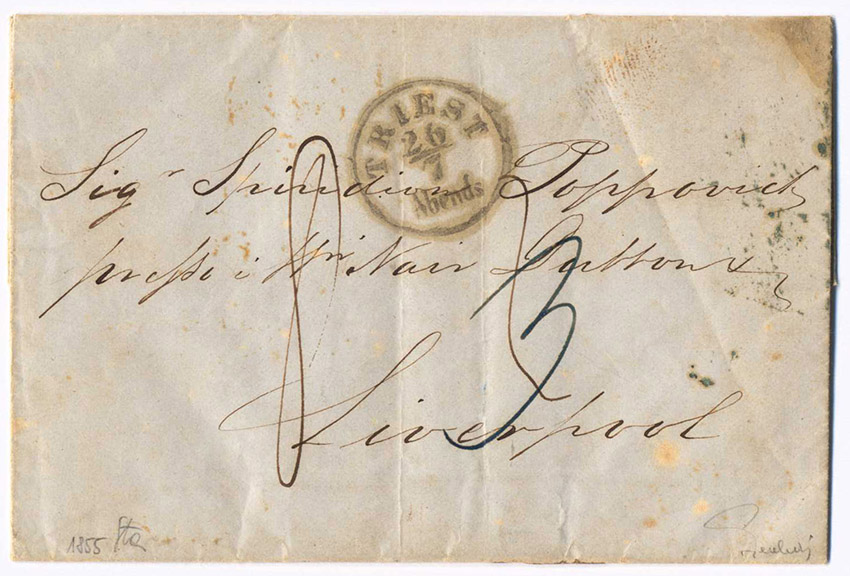 TRIEST
26
7
Abends
Sigr Spiridion Poppovich
presso i Sri Nair Dutton &
Liverpool
8
3
1855